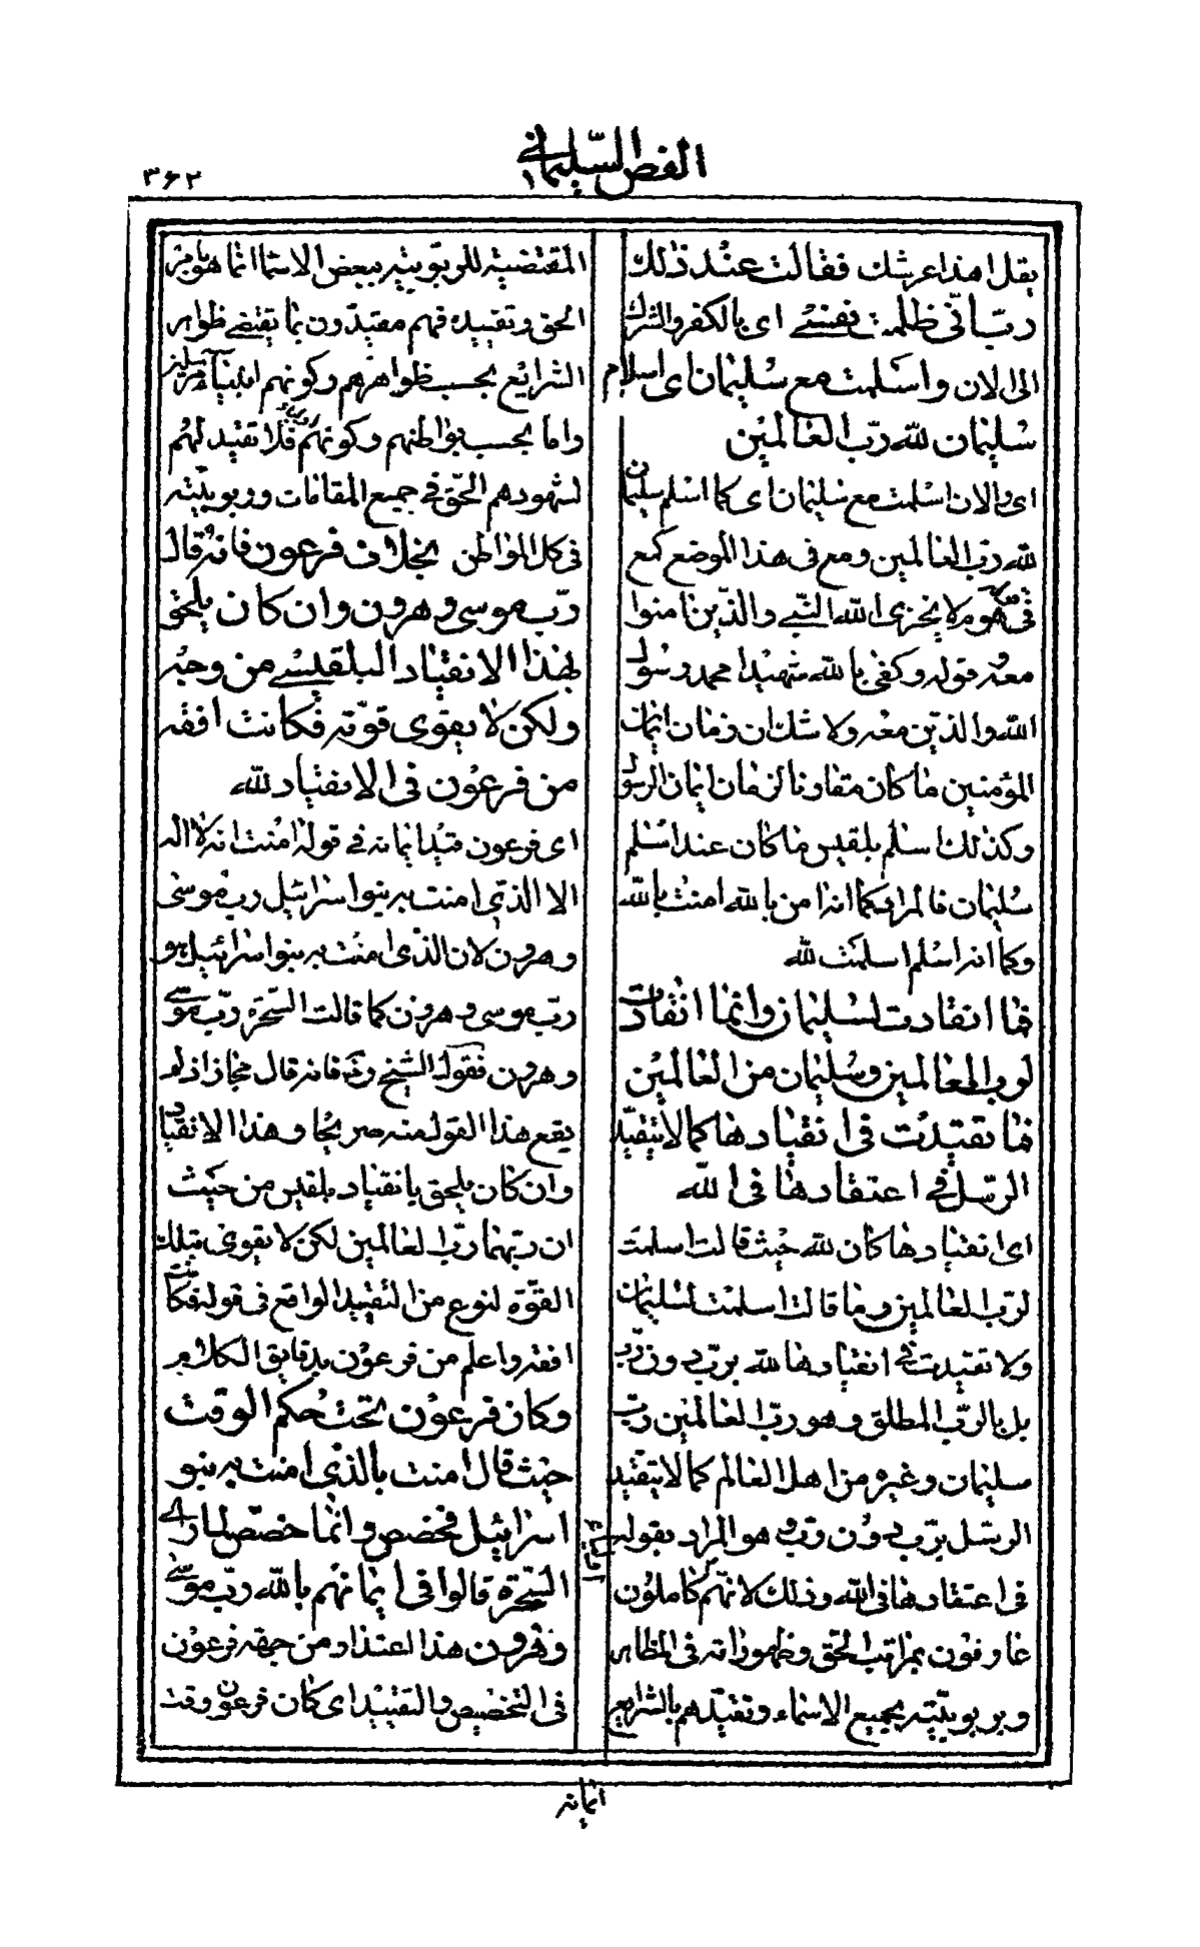 الفص السليمانى
٣۶٢
يقل اهذا عرشك فقالت عند ذلك
رب انى ظلمت نفسى اى بالكفر والشرك
الى الان واسلمت مع سليمان اى اسلام
سليمان لله رب العالمين
اى والان اسلمت مع سليمان اى كما اسلم سليمان
لله رب العالمين ومع فى هذا الموضع كمع
فى يوم لا يخزى الله النبى والذين امنوا
معه وقوله وكفى بالله شهيدا محمد رسول
الله والذين معه ولا شك ان زمان ايمان
المؤمنين ما كان مقارنا لزمان ايمان الرسول
وكذلك اسلم بلقيس ما كان عند اسلم
سليمان فالمراد كما انه امن بالله امنت بالله
وكما انه اسلم اسلمت لله
فما انقادت لسليمان وانما انقادت
لرب العالمين وسليمان من العالمين
فما تقيدت فى انقيادها كما لا تتقيد
الرسل فى اعتقادها فى الله
اى انقيادها كان لله حيث قالت اسلمت
لرب العالمين وما قالت اسلمت لسليمان
ولا تقيدت فى انقيادها لله برب دون رب
بل بالرب المطلق وهو رب العالمين رب
سليمان وغيره من اهل العالم كما لا يتقيد
الرسل برب دون رب وهو المراد بقوله
فى اعتقادها فى الله وذلك لانهم كاملون
عارفون بمراتب الحق وظهوراته فى المظاهر
وبربوبيته بجميع الاسماء وتقيدهم بالشرايع
المقتضية للربوبية ببعض الاسما انما هو بامر
الحق وتقييده فهم مقيدون بما يقتضى ظواهر
الشرايع بحسب ظواهرهم وكونهم انبياء مرسلين
واما بحسب بواطنهم وكونهم اولياء فلا تقييد لهم
لشهودهم الحق فى جميع المقامات وربوبيته
فى كل المواطن بخلاف فرعون فانه قال
رب موسى وهرون وان كان يلحق
بهذا الانقياد البلقيسى من وجه
ولكن لا يقوى قوته فكانت افقه
من فرعون فى الانقياد لله
اى فرعون قيد ايمانه فى قوله امنت انه لا اله
الا الذى امنت به بنوا اسرائيل رب موسى
وهرون لان الذى امنت به بنوا اسرائيل هو
رب موسى وهرون كما قالت السحرة رب موسى
وهرون فقول الشيخ رض فانه قال مجازا اذ لم
يقع هذا القول منه صريحا وهذا الانقياد
وان كان يلحق بانقياد بلقيس من حيث
ان ربهما رب العالمين لكن لا يقوى بتلك
القوة لنوع من التقييد الواقع فى قوله فكانت
افقه واعلم من فرعون بدقايق الكلام
وكان فرعون تحت حكم الوقت
حيث قال امنت بالذى امنت به بنو
اسرائيل فخصص وانما خصص لما راى
السحرة قالوا فى ايمانهم بالله رب موسى
وهرون هذا اعتذار من جهة فرعون
فى التخصيص والتقييد اى كان فرعون وقت
ايمانه